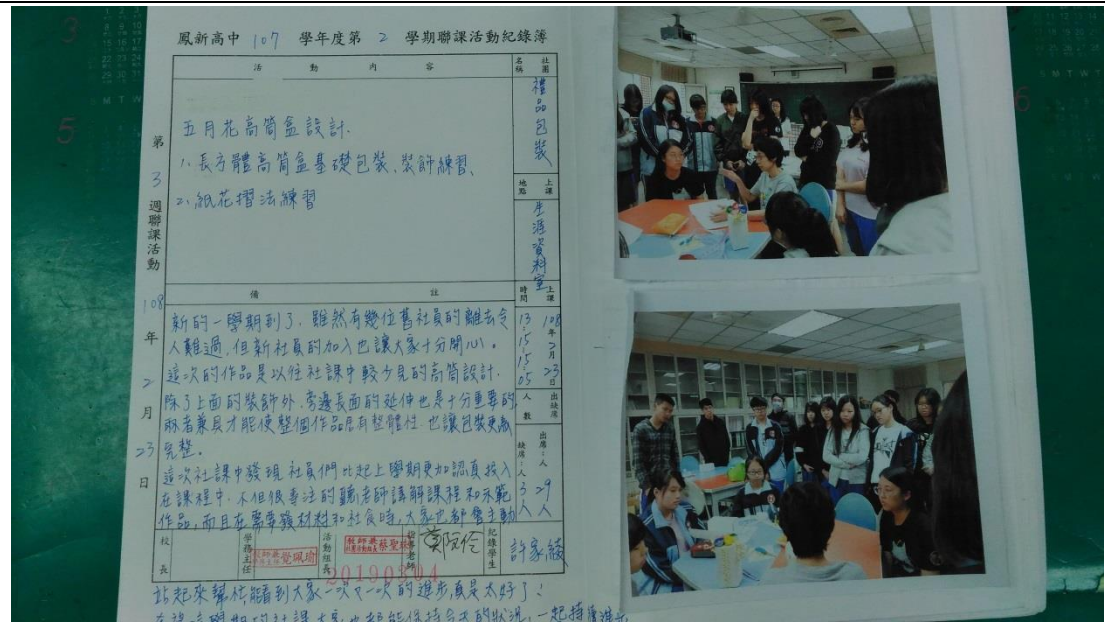 鳳新高中 107 學年度第 2 學期聯課活動紀錄簿
活動內容
社團名稱
禮品包裝
五月花高筒盒設計.
1. 長方體高筒盒基礎包裝、裝飾練習、
2. 紙花摺法練習
上課地點
生涯資料室
第 3 週聯課活動 108 年 2 月 23 日
備註
新的一學期到了，雖然有幾位舊社員的離去令
人難過，但新社員的加入也讓大家十分開心。
這次的作品是以往社課中較少見的高筒設計.
除了上面的裝飾外，旁邊長面的延伸也是十分重要的
兩者兼具才能使整個作品居有整體性.也讓包裝更嚴
完整。
這次社課中發現社員們比起上學期更加認真投入
在課程中.不但很專注的聽老師講解課程和示範
作品，而且在需要發材料和社食時，大家也都會主動
上課時間
108年2月23日
13:15
15:05
出缺席人數
出席：29人
缺席：3人
校長
學務主任
活動組長
指導老師
紀錄學生
許家綾
20190304
站起來幫忙,能看到大家一次又一次的進步真是太好了！